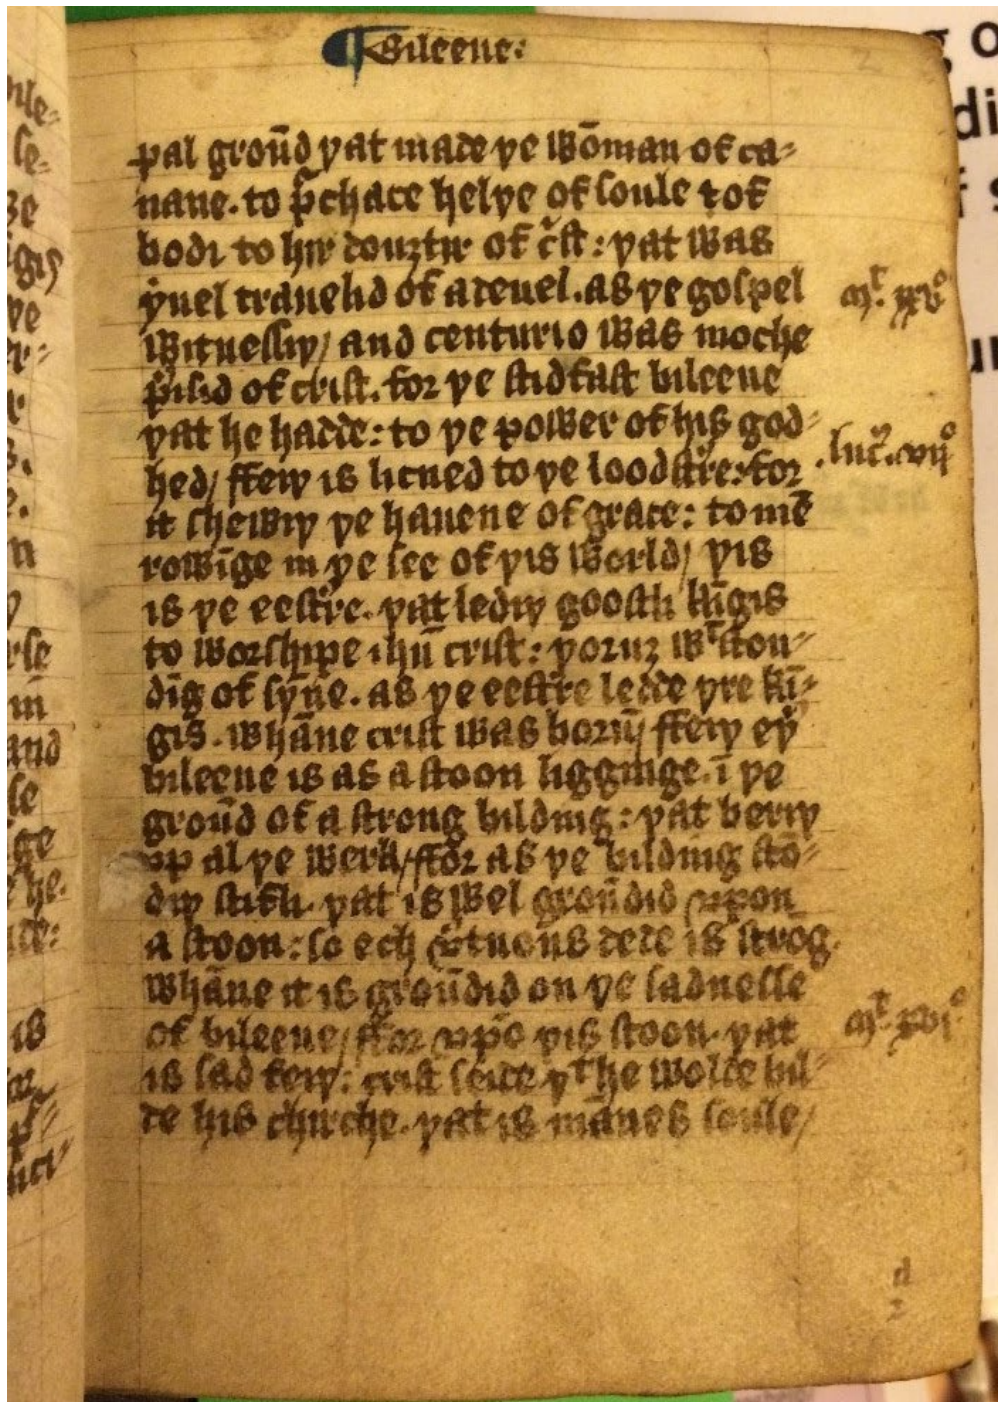 ¶ Bileene:
pal groūd yat made ye wōman of ca⸗
nane. to p̄chace helpe of soule ⁊ of
bodi to hir douȝtir of c̄st: yat was
yuel traueild of a deuel. as ye gospel
mᵗ. xvº
witnessiy/ and centurio was moche
p̄isid of crist. for ye stidfast bileene
yat he hadde: to ye power of his god⸗
luc̄. viiº
hed/ ffeiy is licned to ye loodst̄re: for
it shewiy ye hauene of grace: to mē
rowīge in ye see of yis world/ yis
is ye eest̄re. yat lediy goostli kīgis
to worshipe ihū crist: yoruȝ wᵗston⸗
dīg of sȳne. as ye eest̄re ledde yre kī⸗
gis. whāne crist was born/ ffeiy ey̓
bileene is as a stoon ligginge. ī ye
groūd of a strong bilding: yat beriy
vp al ye werk/ ffor as ye bilding stō⸗
diy stifli. yat is wel groūdid vpon
a stoon: so ech v̓tuous dede is strōg.
whāne it is groūdid on ye sadnesse
of bileene/ ffor vpō yis stoon. yat
mᵗ. xviº
is sad feiy: crist seide yᵗ he wolde bil⸗
de his chirche. yat is mānes soule/
d
2